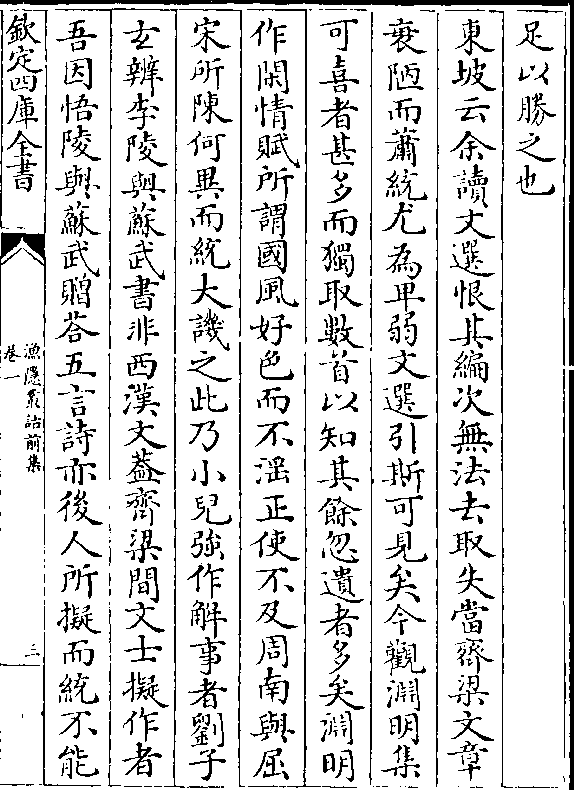 足以勝之也
東坡云余讀文選恨其編次無法去取失當齊梁文章
衰陋而蕭統尤為卑弱文選引斯可見矣今觀淵明集
可喜者甚多而獨取數首以知其餘忽遺者多矣淵明
作閑情賦所謂國風好色而不淫正使不及周南與屈
宋所陳何異而統大譏之此乃小兒強作解事者劉子
玄辨李陵與蘇武書非西漢文葢齊梁間文士擬作者
吾因悟陵與蘇武贈答五言詩亦後人所擬而統不能
欽定四庫全書
漁隱叢話前集
卷一
三